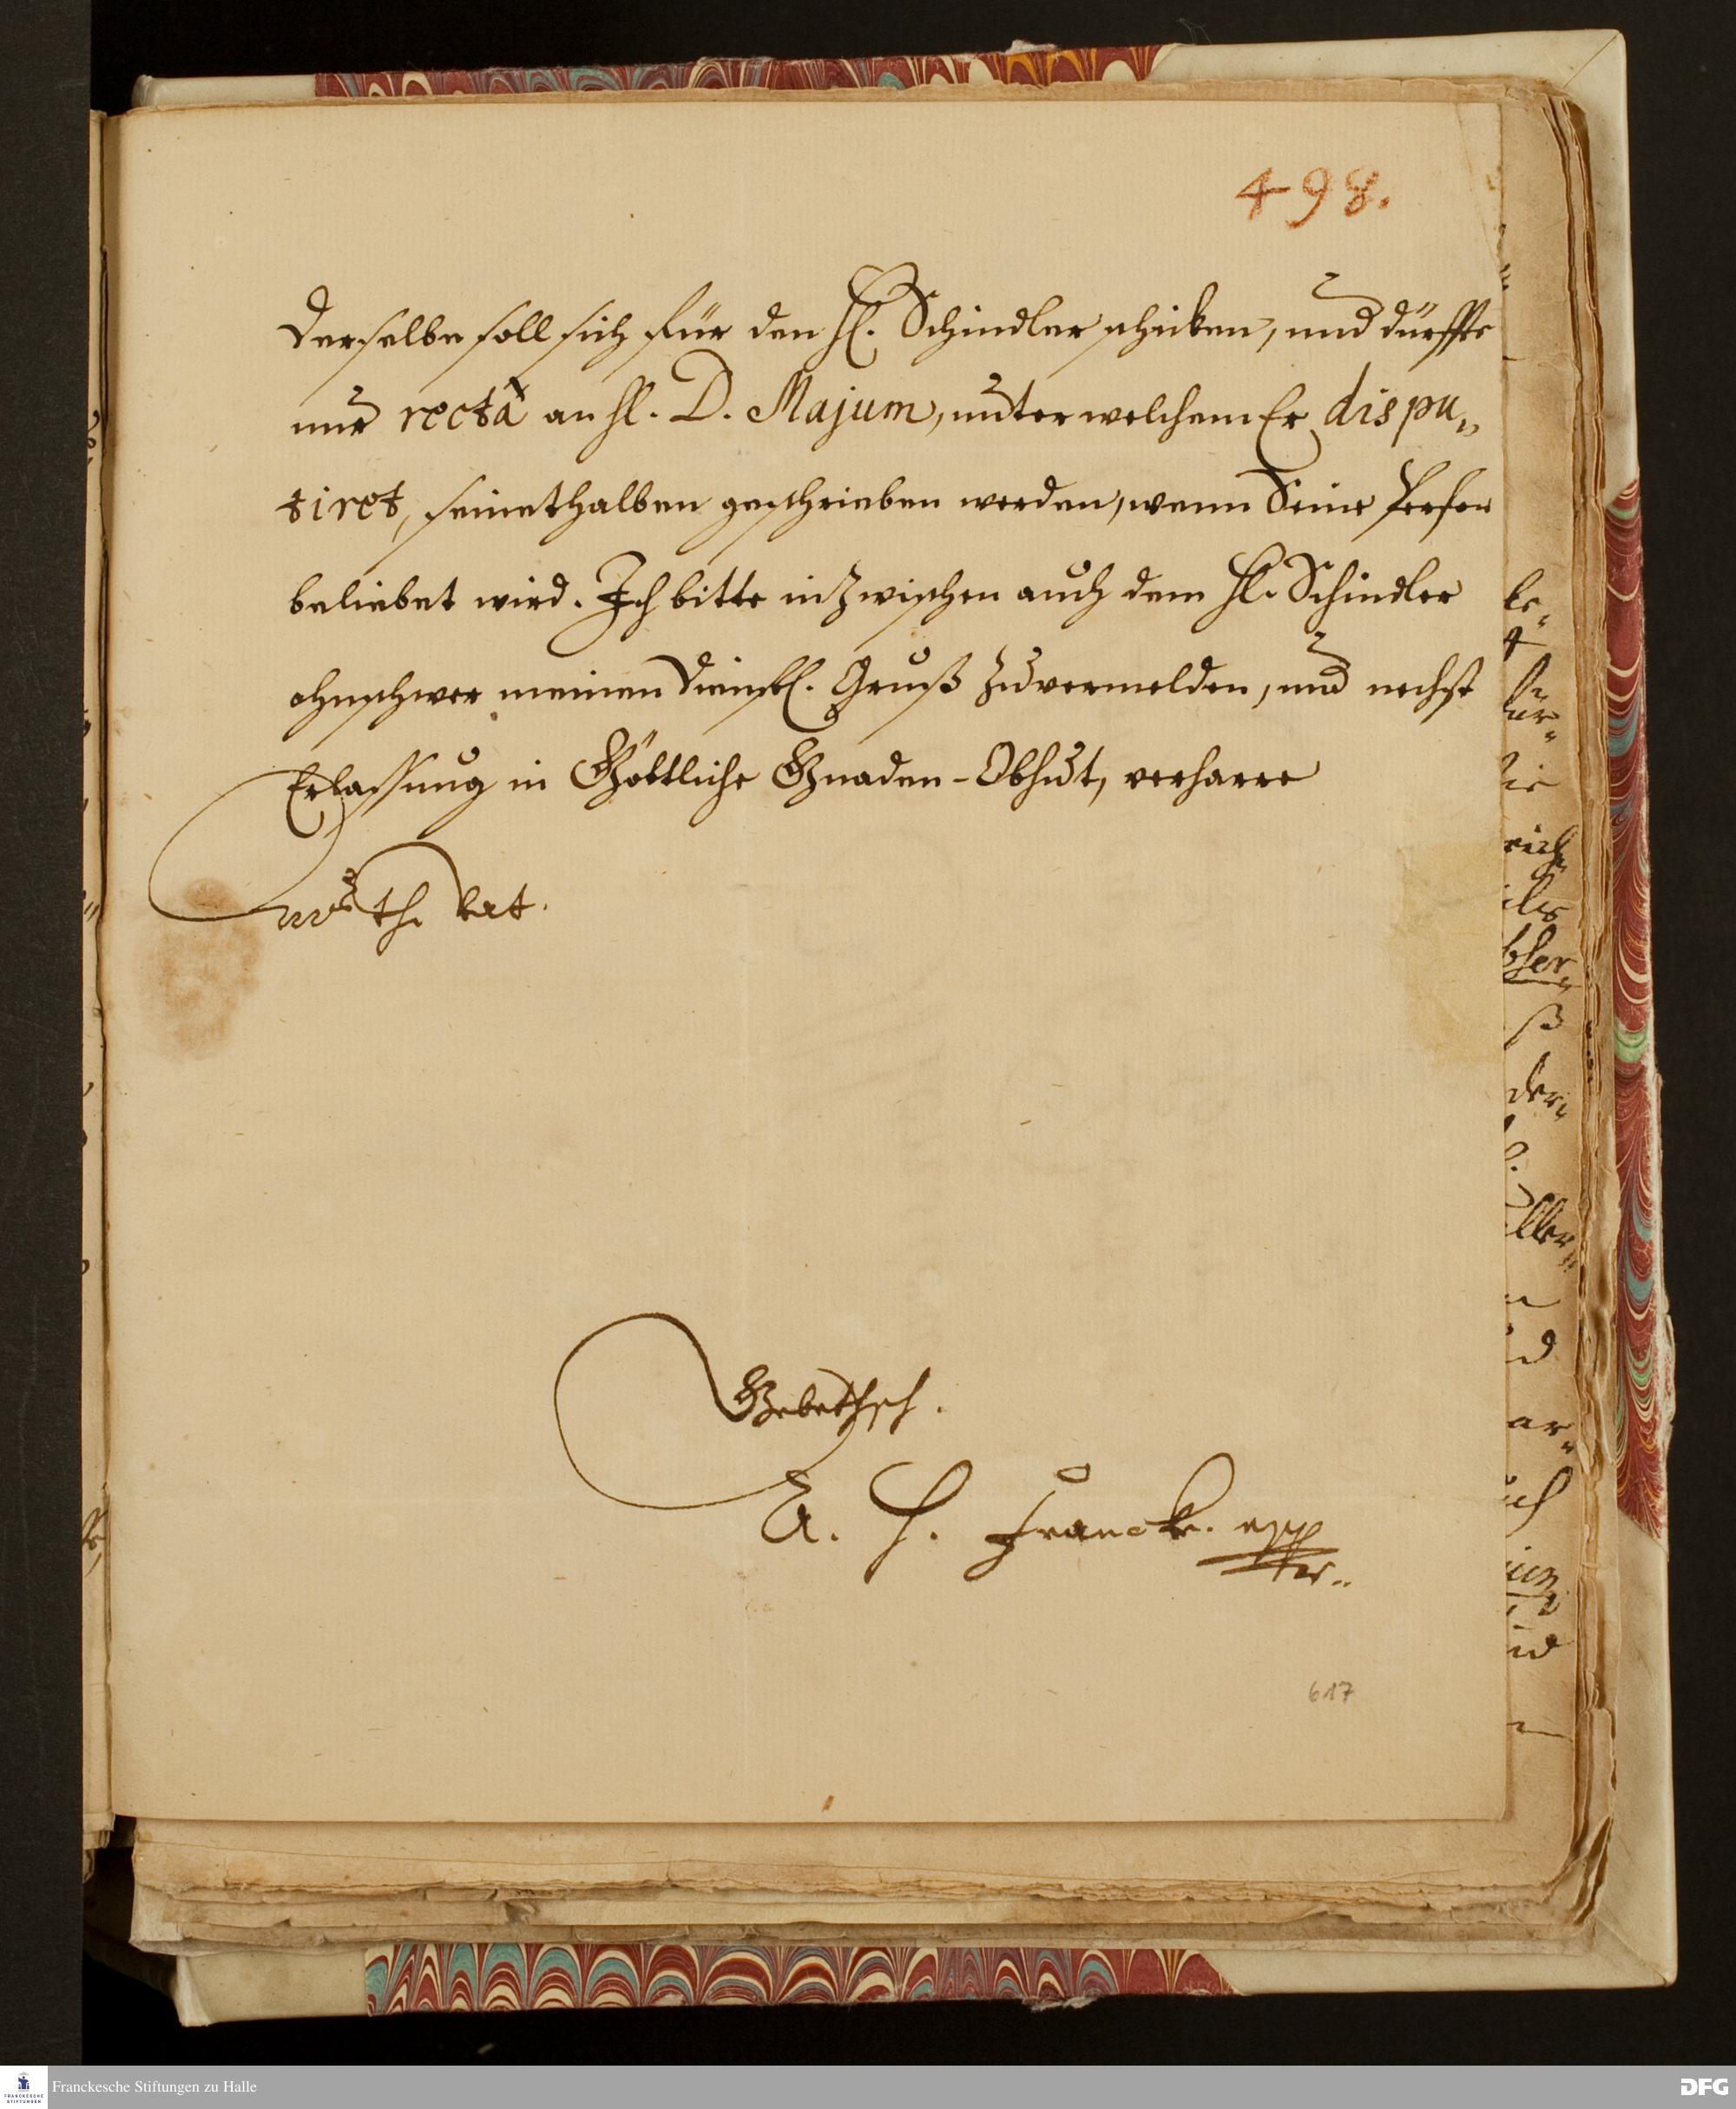 498.
Derselbe soll sich für den H. Schindler schicken, und dürffte
nur rectà an H. D. Majum, unter welchem Er dispu„
tiret, seinethalben geschrieben werden, wenn Seine Person
beliebet wird. Ich bitte inzwischen auch dem H. Schindler
ohnschwer meinen dienstl. Gruß zuvermelden, und nechst
Erlassung in Göttliche Gnaden-Obhut, verharre
Gebethsch.
A. H. Francke.
617
Franckesche Stiftungen zu Halle
DFG